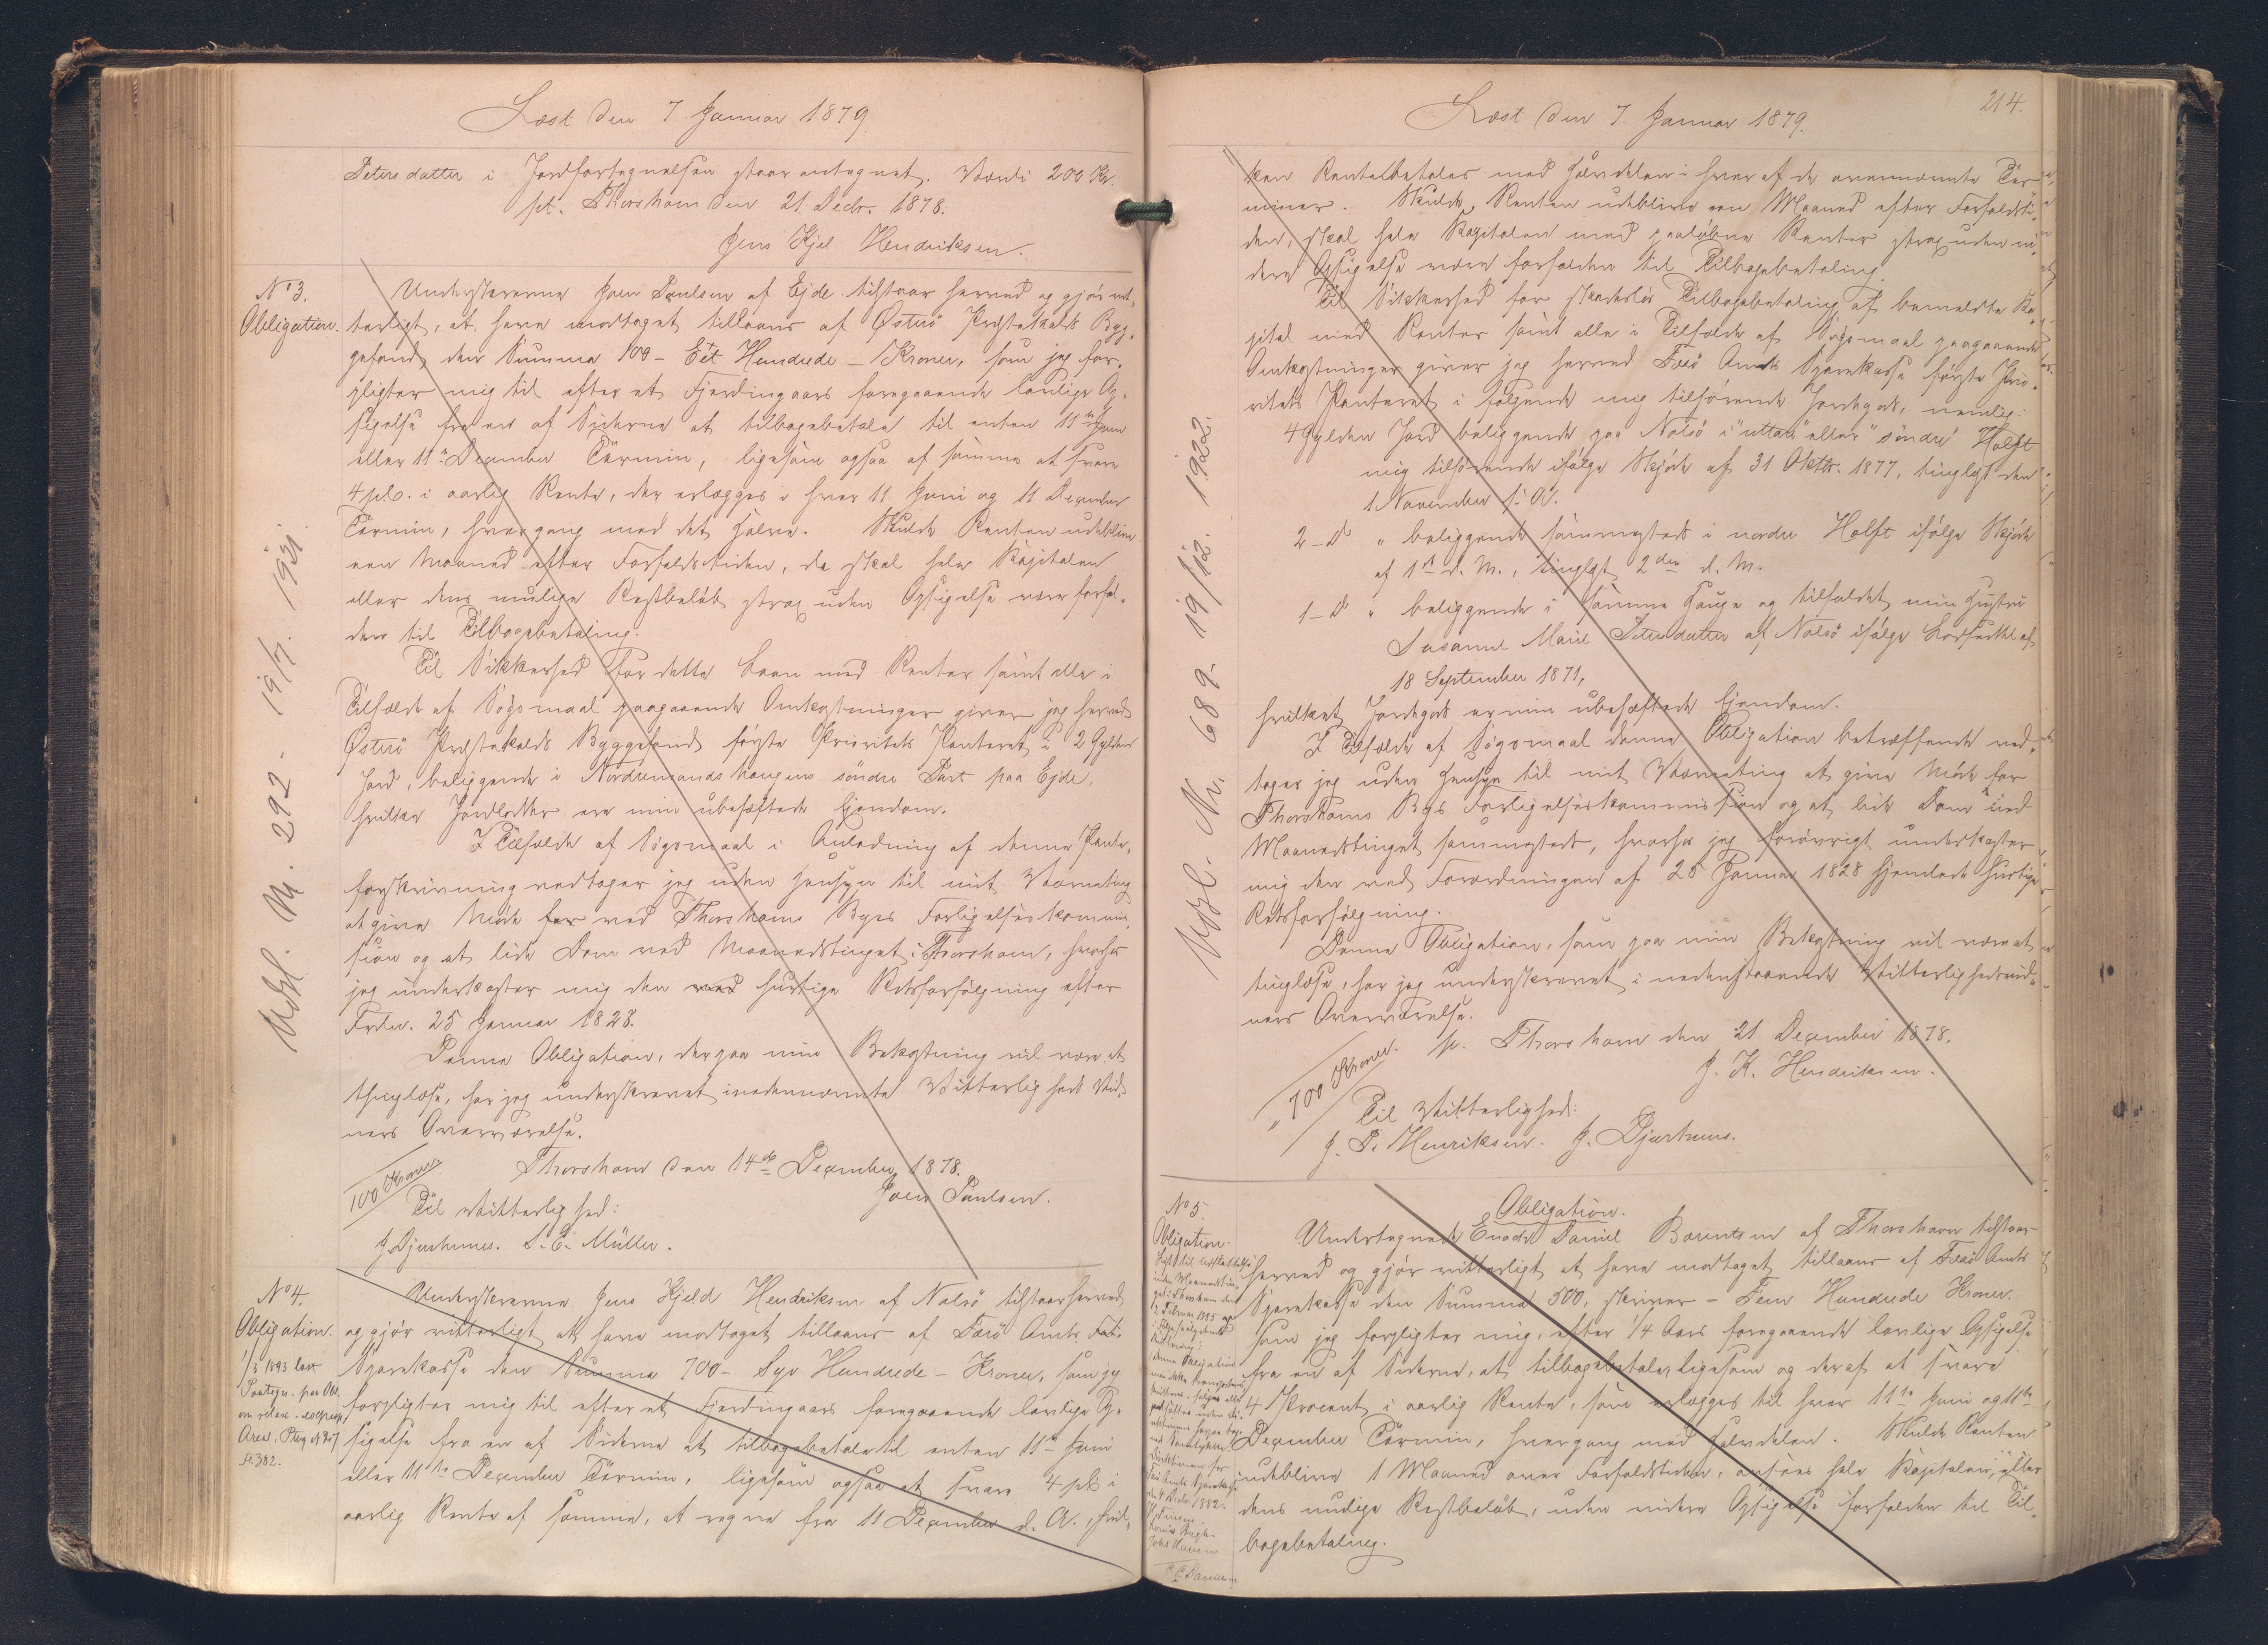 Læst den 7 Januar 1879.
Petersdatter i Jordfortegnelsen staar antegnet. Værdi 200 Kr.
pt. Thorshavn den 21 Decbr. 1878.
Jens Kjel Hendriksen.
No 3.
Obligation.
Underskrevne Joen Poulsen af Ejde tilstaar herved og gjør vit-
terligt, at have modtaget tillaans af Østerø Præstekalds Byg-
gefond, den Summa 100 - Eet Hundrede - Kroner, som jeg for-
pligter mig til efter et Fjerdingaars foregaaende lovlige Op-
sigelse fra en af Siderne at tilbagebetale til enten 11te Juni
eller 11te December Termin, ligesom ogsaa af samme at svare
4 pCt. i aarlig Rente, der erlægges i hver 11 Juni og 11 December
Termin, hvergang med det halve. Skulde Renten udeblive
een Maaned efter Forfaldstiden, da skal hele Kapitalen
eller dens mulige Restbeløb strax uden Opsigelse være forfal-
den til Tilbagebetaling.
Til Sikkerhed for dette Laan med Renter samt alle i
Tilfælde af Søgsmaal paagaaende Omkostninger giver jeg herved
Østerø Præstekalds Byggefond første Prioritets Panteret i 2 Gylden
Jord, beliggende i Nordremands haugens søndre Part paa Ejde,
hvilke Jordlodder ere min ubehæftede Ejendom.
I Tilfælde af Søgsmaal i Anledning af denne Pante-
forskrivning vedtager jeg uden Hensyn til mit Værneting
at give Møde for ved Thorshavns Byes Forligelseskommis-
sion og at lide Dom ved Maanedstinget i Thorshavn, hvorhos
jeg underkaster mig den ved hurtige Retsforfølgning efter
Frdn. 25 Januar 1828.
Denne Obligation, der paa min Bekostning vil være at
thinglæse, har jeg underskrevet i nedennævnte Vitterligheds Vid-
ners Overværelse.
Thorshavn den 14de December 1878.
100 Kroner
Joen Poulsen.
Til Vitterlighed:
J. Djurhuus. S. E. Müller.
Udsl. Nr. 292 - 19/7. 1931.
No 4.
Obligation.
1/3 1893 læst
Paategn. paa Obl.
Underskrevne Jens Kjeld Hendriksen af Nolsø tilstaar herved
og gjør vitterligt at have modtaget tillaans af Færø Amts
Sparekasse den Summa 700 - Syv Hundrede - Kroner, som jeg
forpligter mig til efter et Fjerdingaars foregaaende lovlige Op-
sigelse fra en af Siderne at tilbagebetale til enten 11te Juni
eller 11te December Termin, ligesom ogsaa at svare 4 pCt. i
aarlig Rente af samme, at regne fra 11 December d. A., hvil-
Læst den 7 Januar 1879.
214.
ken Rente betales med Halvdelen i hver af de ovennævnte Ter-
miner. Skulde Renten udeblive een Maaned efter Forfaldsti-
den, skal hele Kapitalen med paaløbne Renter strax uden vi-
dere Opsigelse være forfalden til Tilbagebetaling.
Til Sikkerhed for skadesløs Tilbagebetaling af bemeldte Ka-
pital med Renter samt alle i Tilfælde af Søgsmaal paagaaende
Omkostninger giver jeg herved Færø Amts Sparekasse første Prio-
ritets Panteret i følgende mig tilhørende Jordegods, nemlig:
4 Gylden Jord beliggende paa Nolsø i "uttari" eller "søndre" Halft
mig tilhørende ifølge Skjøde af 31 Oktbr. 1877, tinglæst den
1 November s. A.
2 - D " beliggende sammesteds i nordre Halft ifølge Skjøde
af 1ste d. M., tinglæst 2den d. M.
1 - D " beliggende i samme Hauge og tilfaldet min Hustru
Susanne Marie Petersdatter af Nolsø ifølge Lodseddel af
18 September 1871,
hvilket Jordegods er min ubehæftede Ejendom.
I Tilfælde af Søgsmaal denne Obligation betræffende ved-
tager jeg uden Hensyn til mit Værneting at give Møde for
Thorshavns Byes Forligelseskommission og at lide Dom ved
Maanedstinget sammesteds, hvorhos jeg forøvrigt underkaster
mig den ved Forordningen af 25 Januar 1828 hjemlede hurtige
Retsforfølgning.
Denne Obligation, som paa min Bekostning vil være at
tinglæse, har jeg underskrevet i nedenstaaende Vitterlighedsvid-
ners Overværelse.
pt. Thorshavn den 21 December 1878.
700 Kroner.
J. K. Hendriksen.
Til Vitterlighed:
J. P. Henriksen. J. Djurhuus.
Udsl. Nr. 689 - 19/12. 1922.
No 5.
Obligation.
Obligation.
Undertegnede Enoch Daniel Bærentsen af Thorshavn tilstaar
herved og gjør vitterligt at have modtaget tillaans af Færø Amts
Sparekasse den Summa 500, skriver - Fem Hundrede Kroner
som jeg forpligter mig, efter 1/4 Aars foregaaende lovlige Opsigelse
fra en af Siderne, at tilbagebetale, ligesom og deraf at svare
4 Procent i aarlig Rente, som erlægges til hver 11te Juni og 11te
December Termin, hvergang med Halvdelen. Skulde Renten
udeblive 1 Maaned over Forfaldstiden, ansees hele Kapitalen, eller
dens mulige Restbeløb, uden videre Opsigelse forfalden til Til-
bagebetaling.